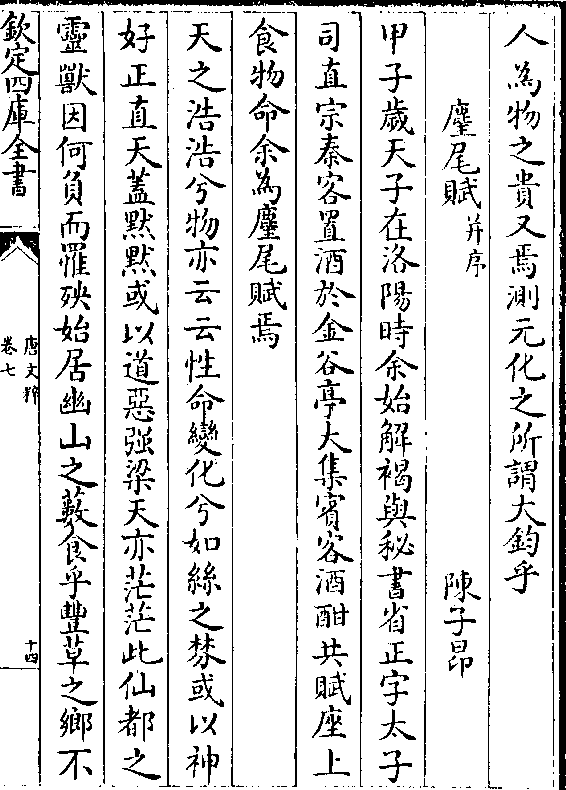 人為物之貴又焉測元化之所謂大鈞乎
麈尾賦并序 陳子昂
甲子歲天子在洛陽時余始解褐與秘書省正字太子
司直宗秦客置酒於金谷亭大集賓客酒酣共賦座上
食物命余為麈尾賦焉
天之浩浩兮物亦云云性命變化兮如絲之棼或以神
好正直天蓋默默或以道惡强梁天亦茫茫此仙都之
靈獸因何負而罹殃始居幽山之藪食乎豐草之鄉不
欽定四庫全書
唐文粹
卷七
十四